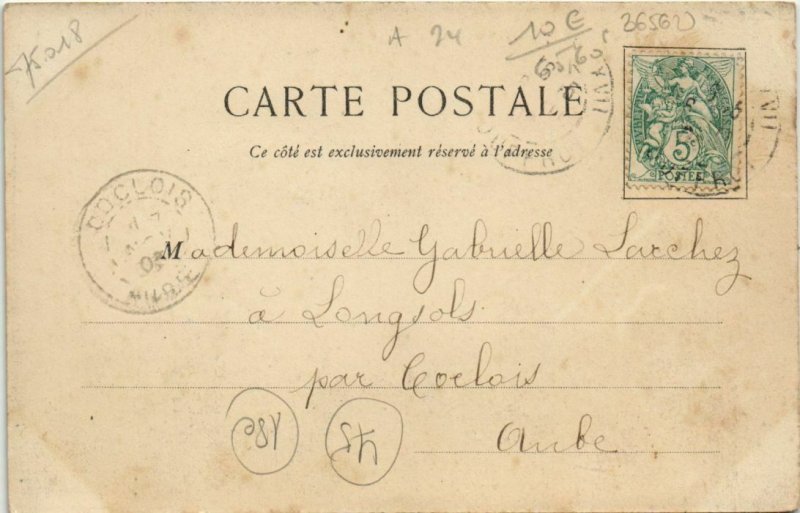 75018
A 24
10 €
36562
CARTE POSTALE
Ce côté est exclusivement réservé à l'adresse
5
POSTES
COCLOIS
AUBE
Mademoiselle Gabrielle Larchez
à Longsols
par Coclois
Aube
18e
75